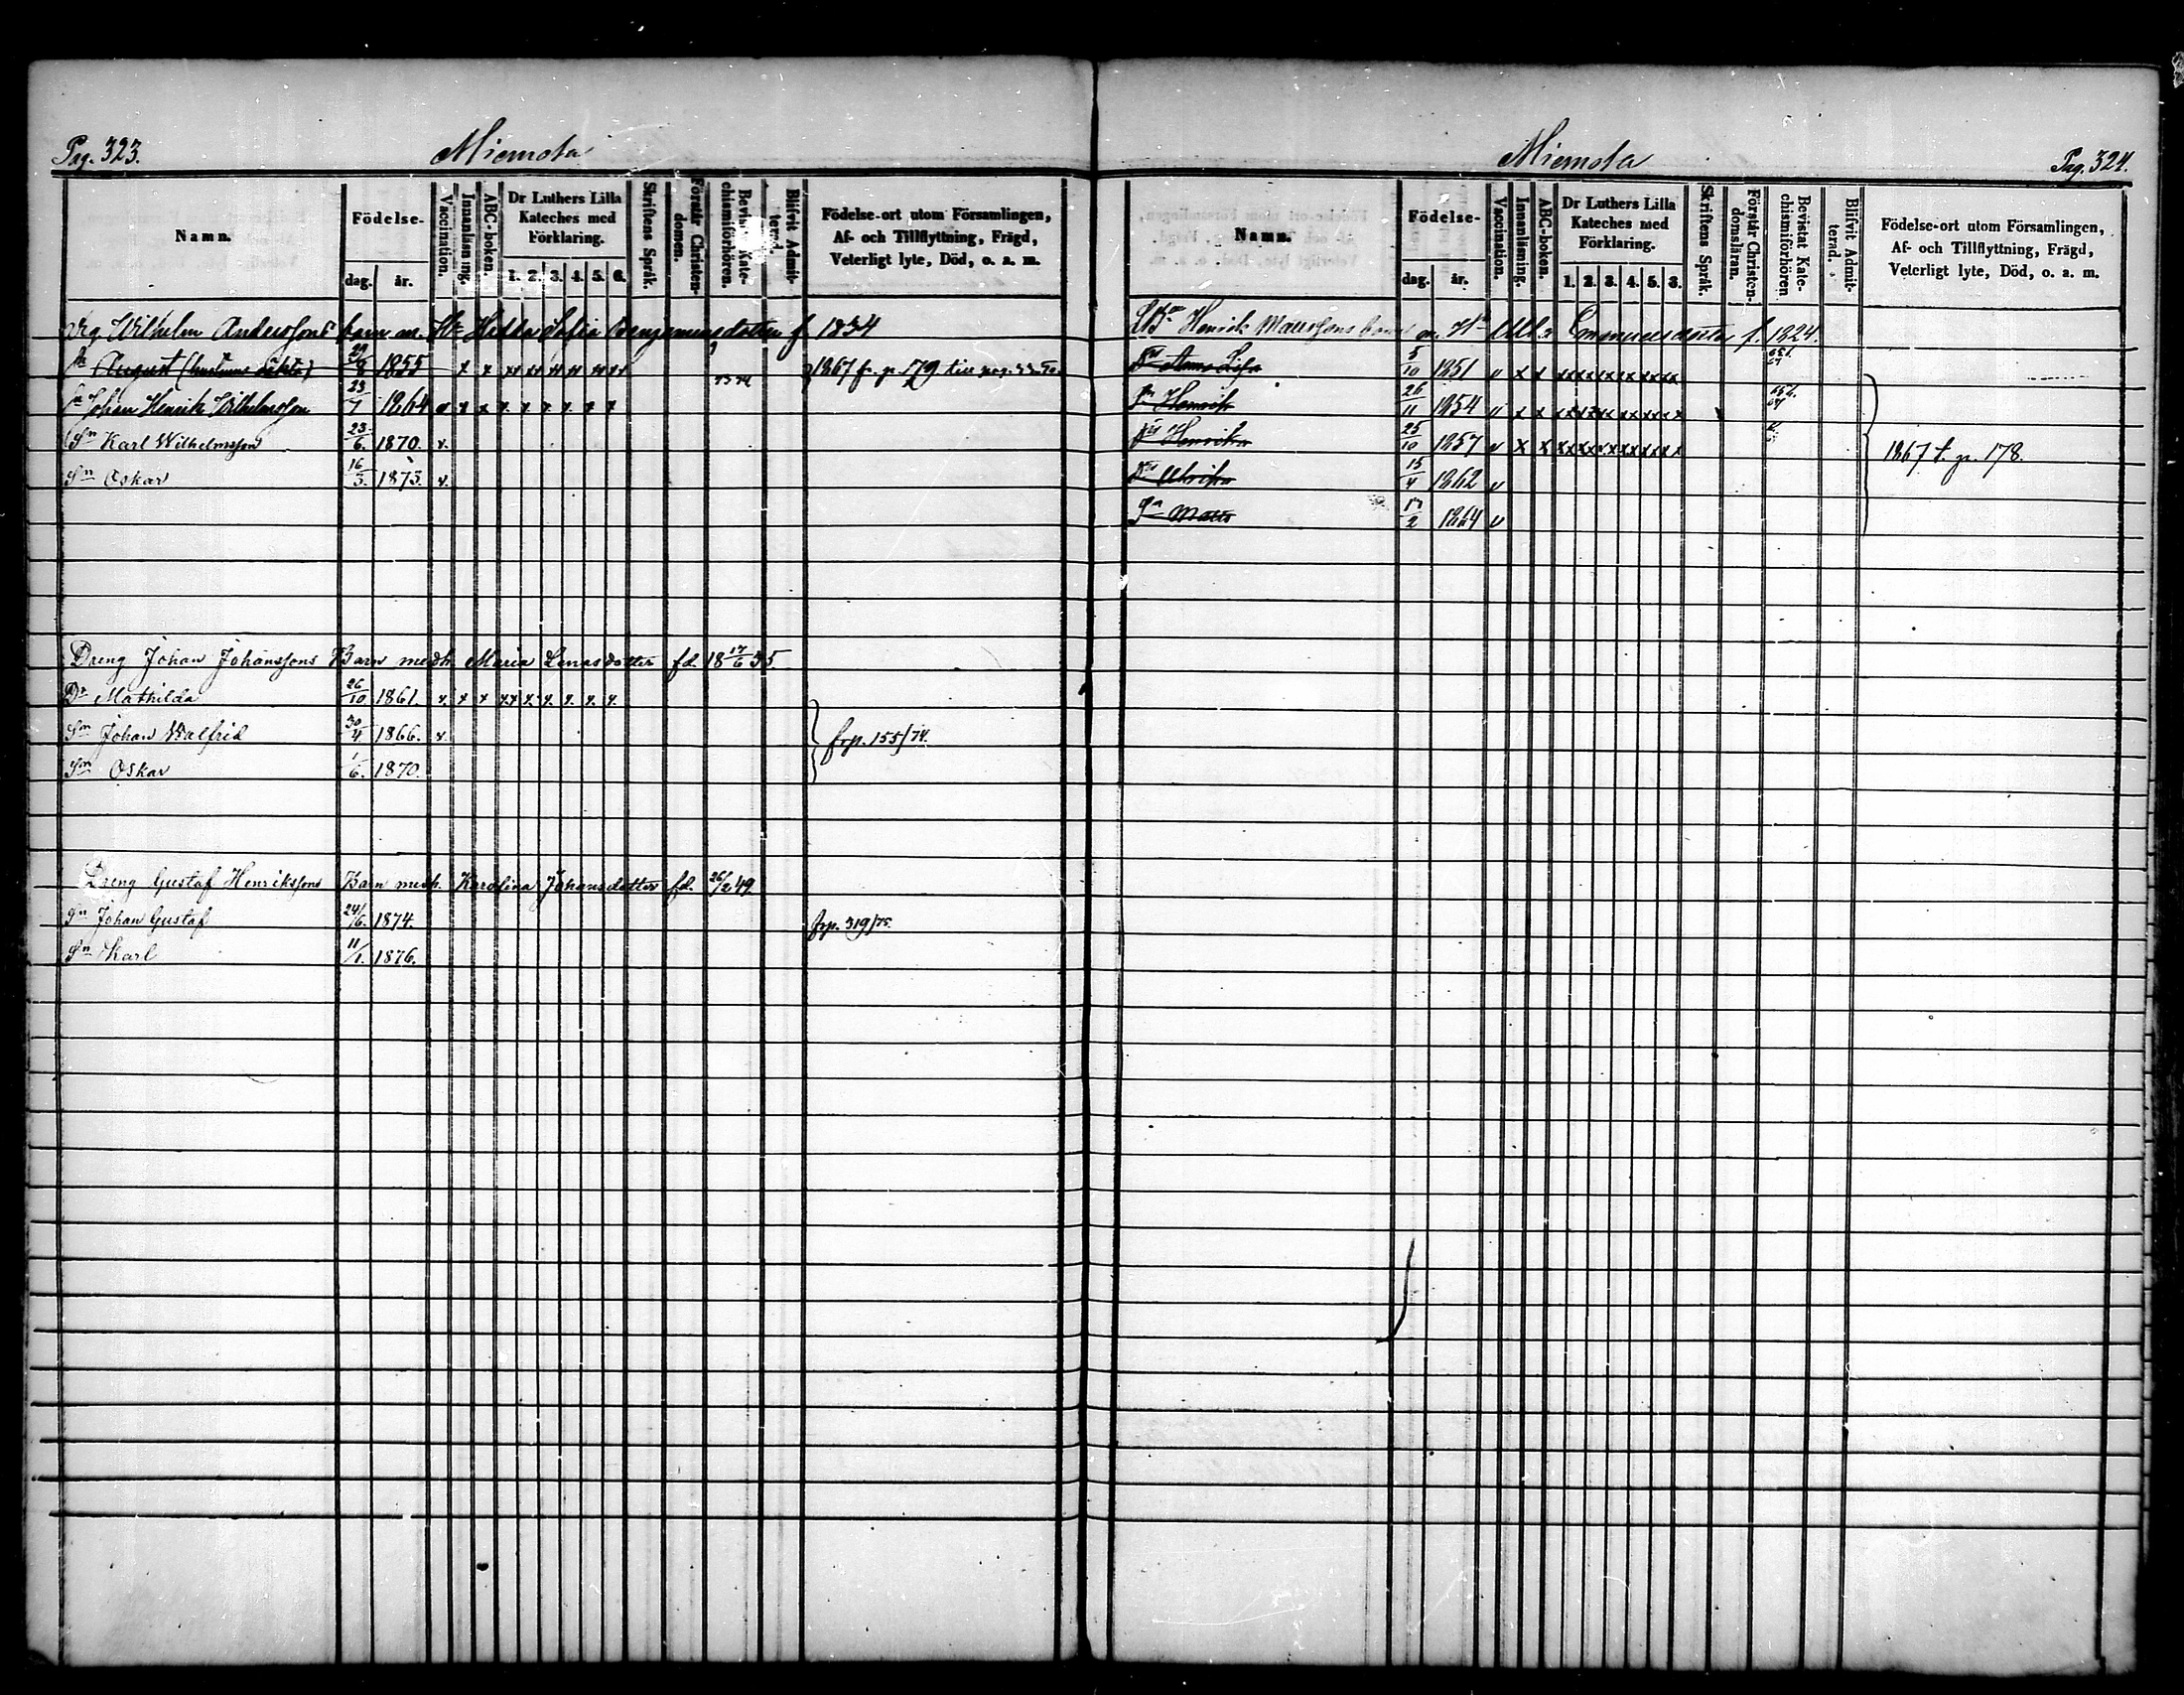 Pag. 323.
Miemola
Namn.
Födelse-
dag.
år.
Vaccination.
Innanläsning.
ABC-boken.
Dr Luthers Lilla
Kateches med
Förklaring.
1. 2. 3. 4. 5. 6.
Skriftens Språk.
Förstår Christen-
domen.
Bevistat Kate-
chismiförhören.
Blifvit Admit-
terad.
Födelse-ort utom Församlingen,
Af- och Tillflyttning, Frägd,
Veterligt lyte, Död, o. a. m.
Drg Wilhelm Anderssons barn m. H. Hedda Sofia Benjaminsdotter f 1834
Sn August (hustruns oäkta) 8 1855 x x xx xx xx xx xx xx 1867 fr. p. 179 till pag.
Sn Johan Henrik Wilhelmsson 23/7 1864 v x x x x x x x x
Sn Karl Wilhelmsson 23/6. 1870. v.
Sn Oskar 16/3. 1873. v.
Dreng Johan Johanssons Barn med h. Maria Lenasdotter fd. 18 17/6 35
Dr Mathilda 26/10 1861. v. x x xx x. x. x. x. x.
Sn Johan Walfrid 30/4 1866. v.
frp. 155/74.
Sn Oskar 1/6. 1870.
Dreng Gustaf Henrikssons Barn med h. Karolina Johansdotter fd. 26/2 49.
Sn Johan Gustaf 24/6. 1874. frp. 319/75.
Sn Karl 11/1. 1876.
Miemola
Pag. 324.
Namn.
Födelse-
dag.
år.
Vaccination.
Innanläsning.
ABC-bokon.
Dr Luthers Lilla
Kateches med
Förklaring.
1. 2. 3. 4. 5. 3.
Skriftens Språk.
Förstår Christen-
domsläran.
Bevistat Kate-
chismiförhören
Blifvit Admit-
terad.
Födelse-ort utom Församlingen,
Af- och Tillflyttning, Frägd,
Veterligt lyte, Död, o. a. m.
Henrik Mattssons barn m. Hn Ulla f. 1824.
Anna Lisa 5/10 1851 v x x xx xx xx xx xx xx
Sn Henrik 26/11 1854 v x x xx xx xx xx xx x
Henrika 25/10 1857 v x x xx xx xx xx xx x
1867 t. p. 178.
Ulrika 15/4 1862 v
Sn Matts 17/2 1864 v